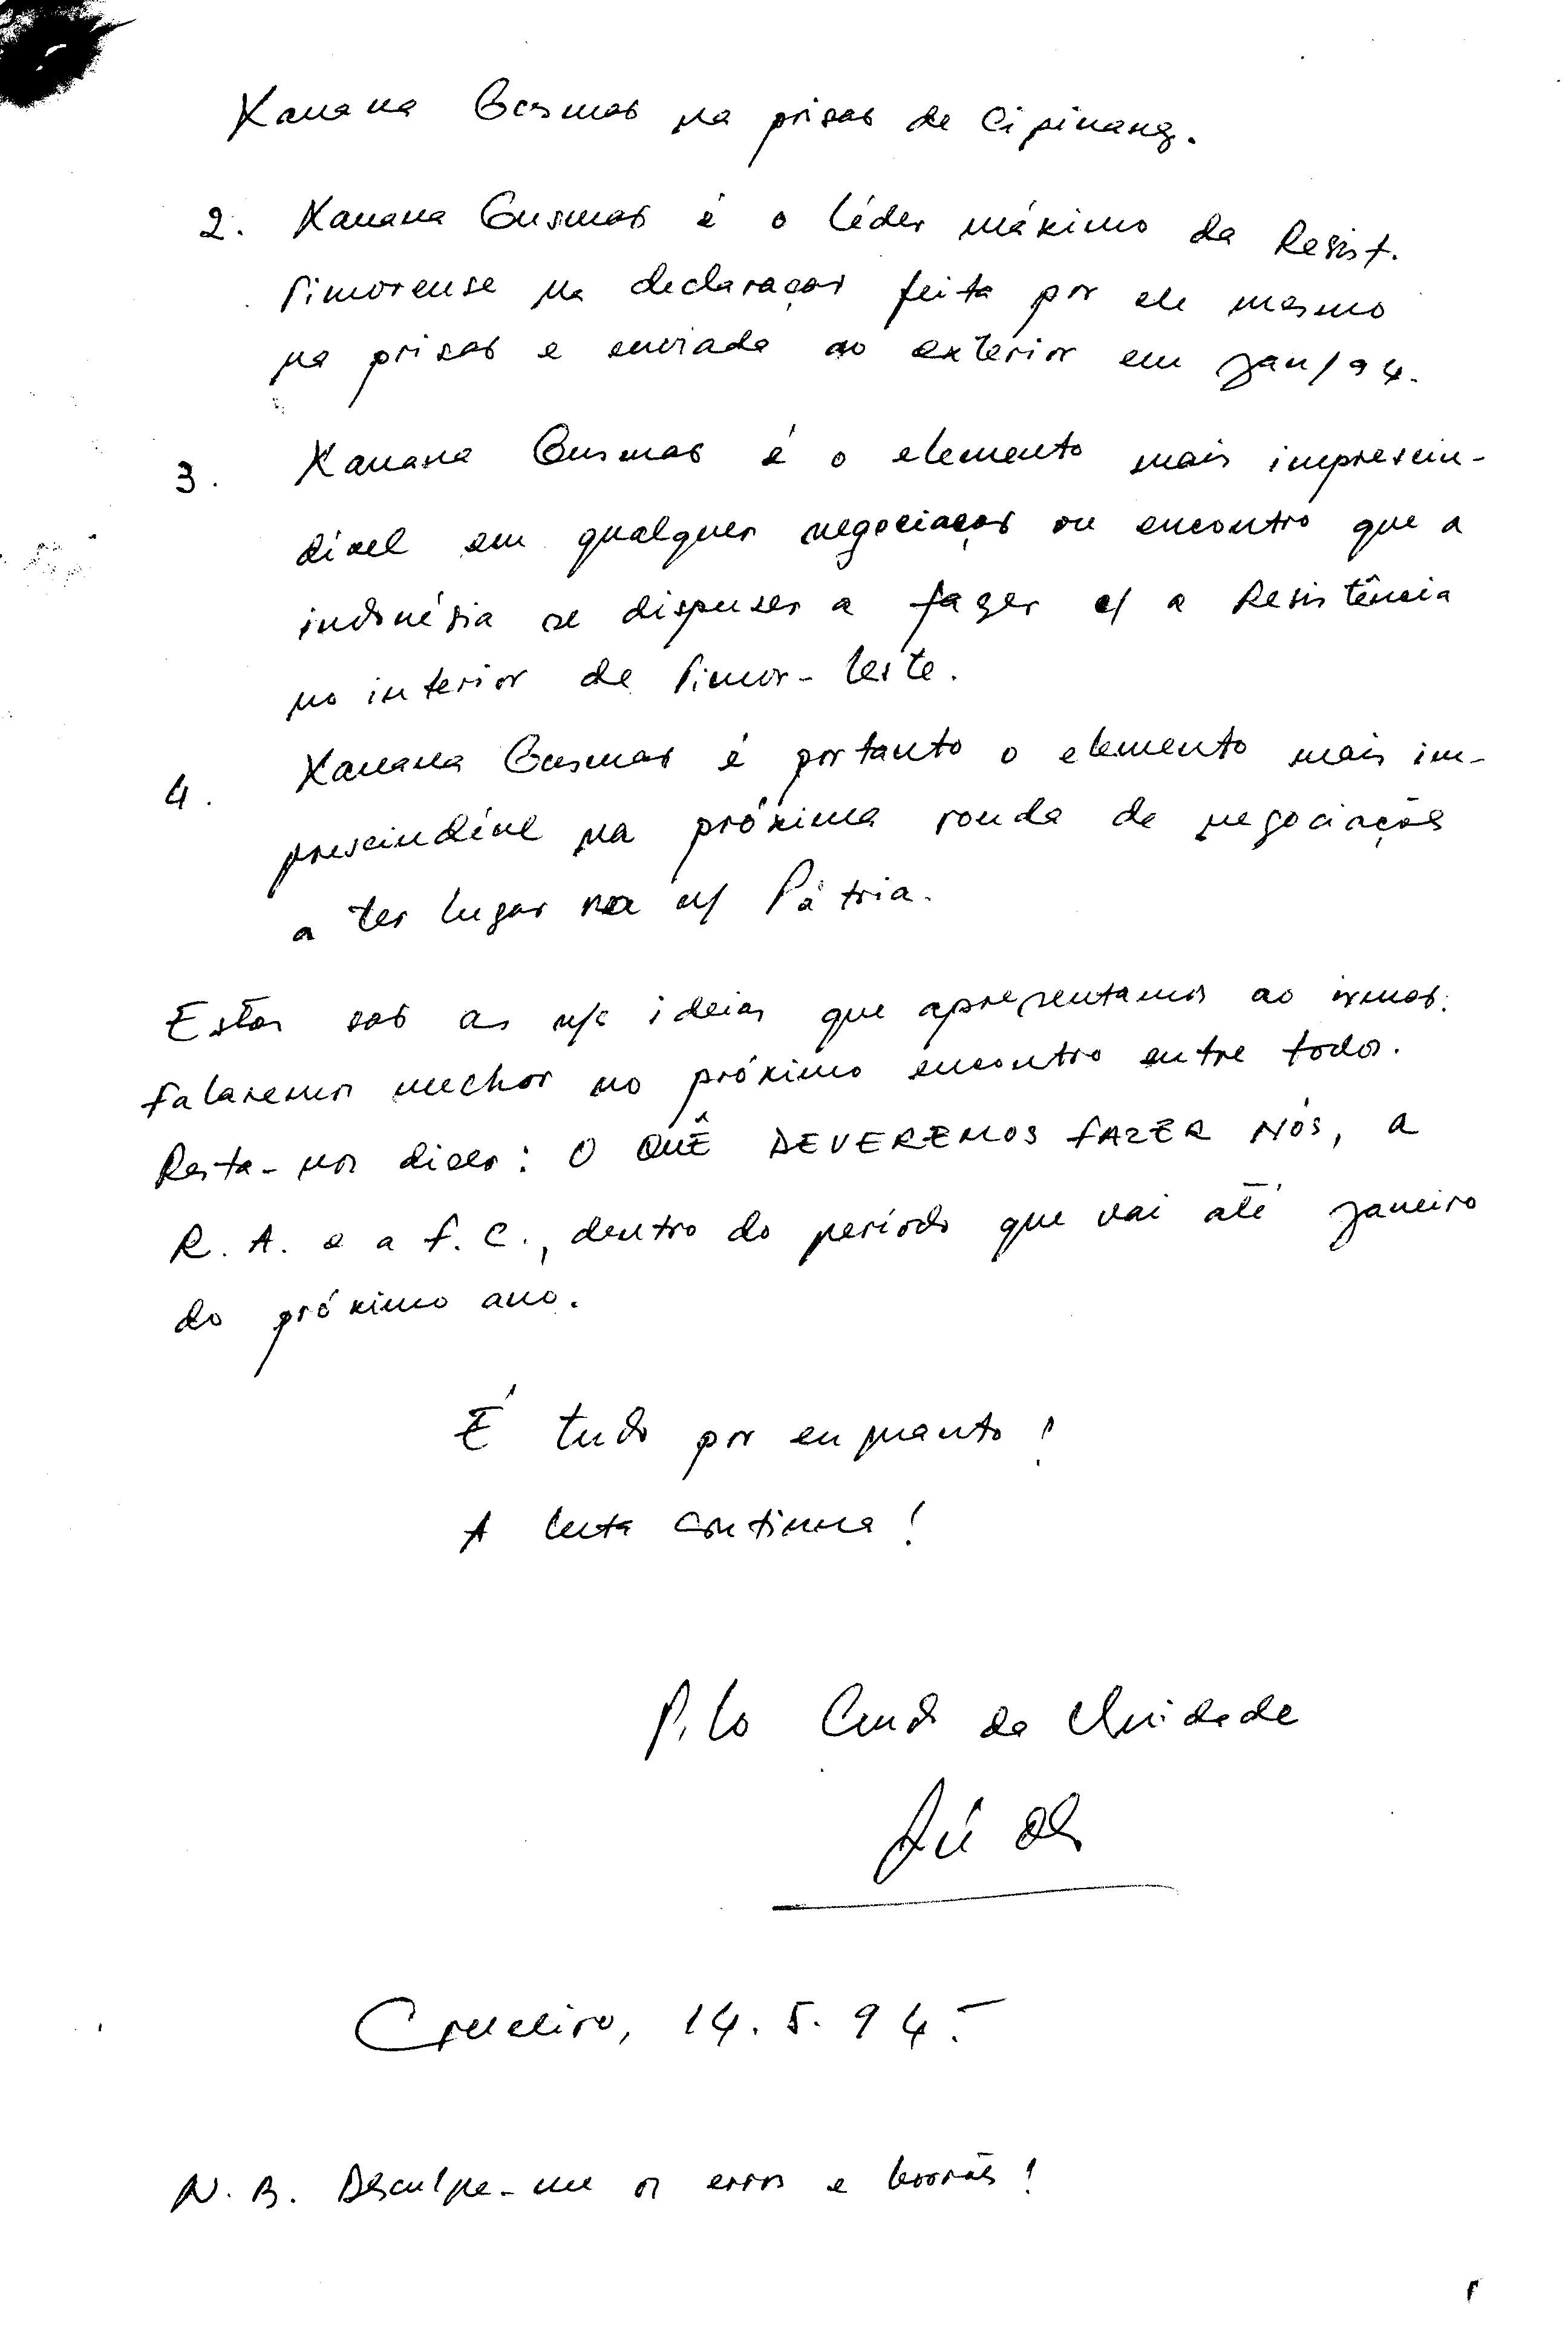 Xanana Gusmão na prisão de Cipinang.
2. Xanana Gusmão é o líder máximo da Resist.
Timorense na declaração feita por ele mesmo
na prisão e enviada ao exterior em Jan/94.
3. Xanana Gusmão é o elemento mais imprescin-
dível em qualquer negociação ou encontro que a
indonésia se dispuser a fazer c/ a Resistência
no interior de Timor-Leste.
4. Xanana Gusmão é portanto o elemento mais im-
prescindível na próxima ronda de negociações
a ter lugar na n/ Pátria.
Estas são as n/s ideias que apresentamos ao irmão.
Falaremos melhor no próximo encontro entre todos.
Resta-nos dizer: O QUÊ DEVEREMOS FAZER NÓS, a
R. A. e a F. C., dentro do período que vai até Janeiro
do próximo ano.
É tudo por enquanto!
A luta continua!
P.lo Cmdo da Unidade
Cruzeiro, 14.5.94.-
N. B. Desculpe-me os erros e borrões!